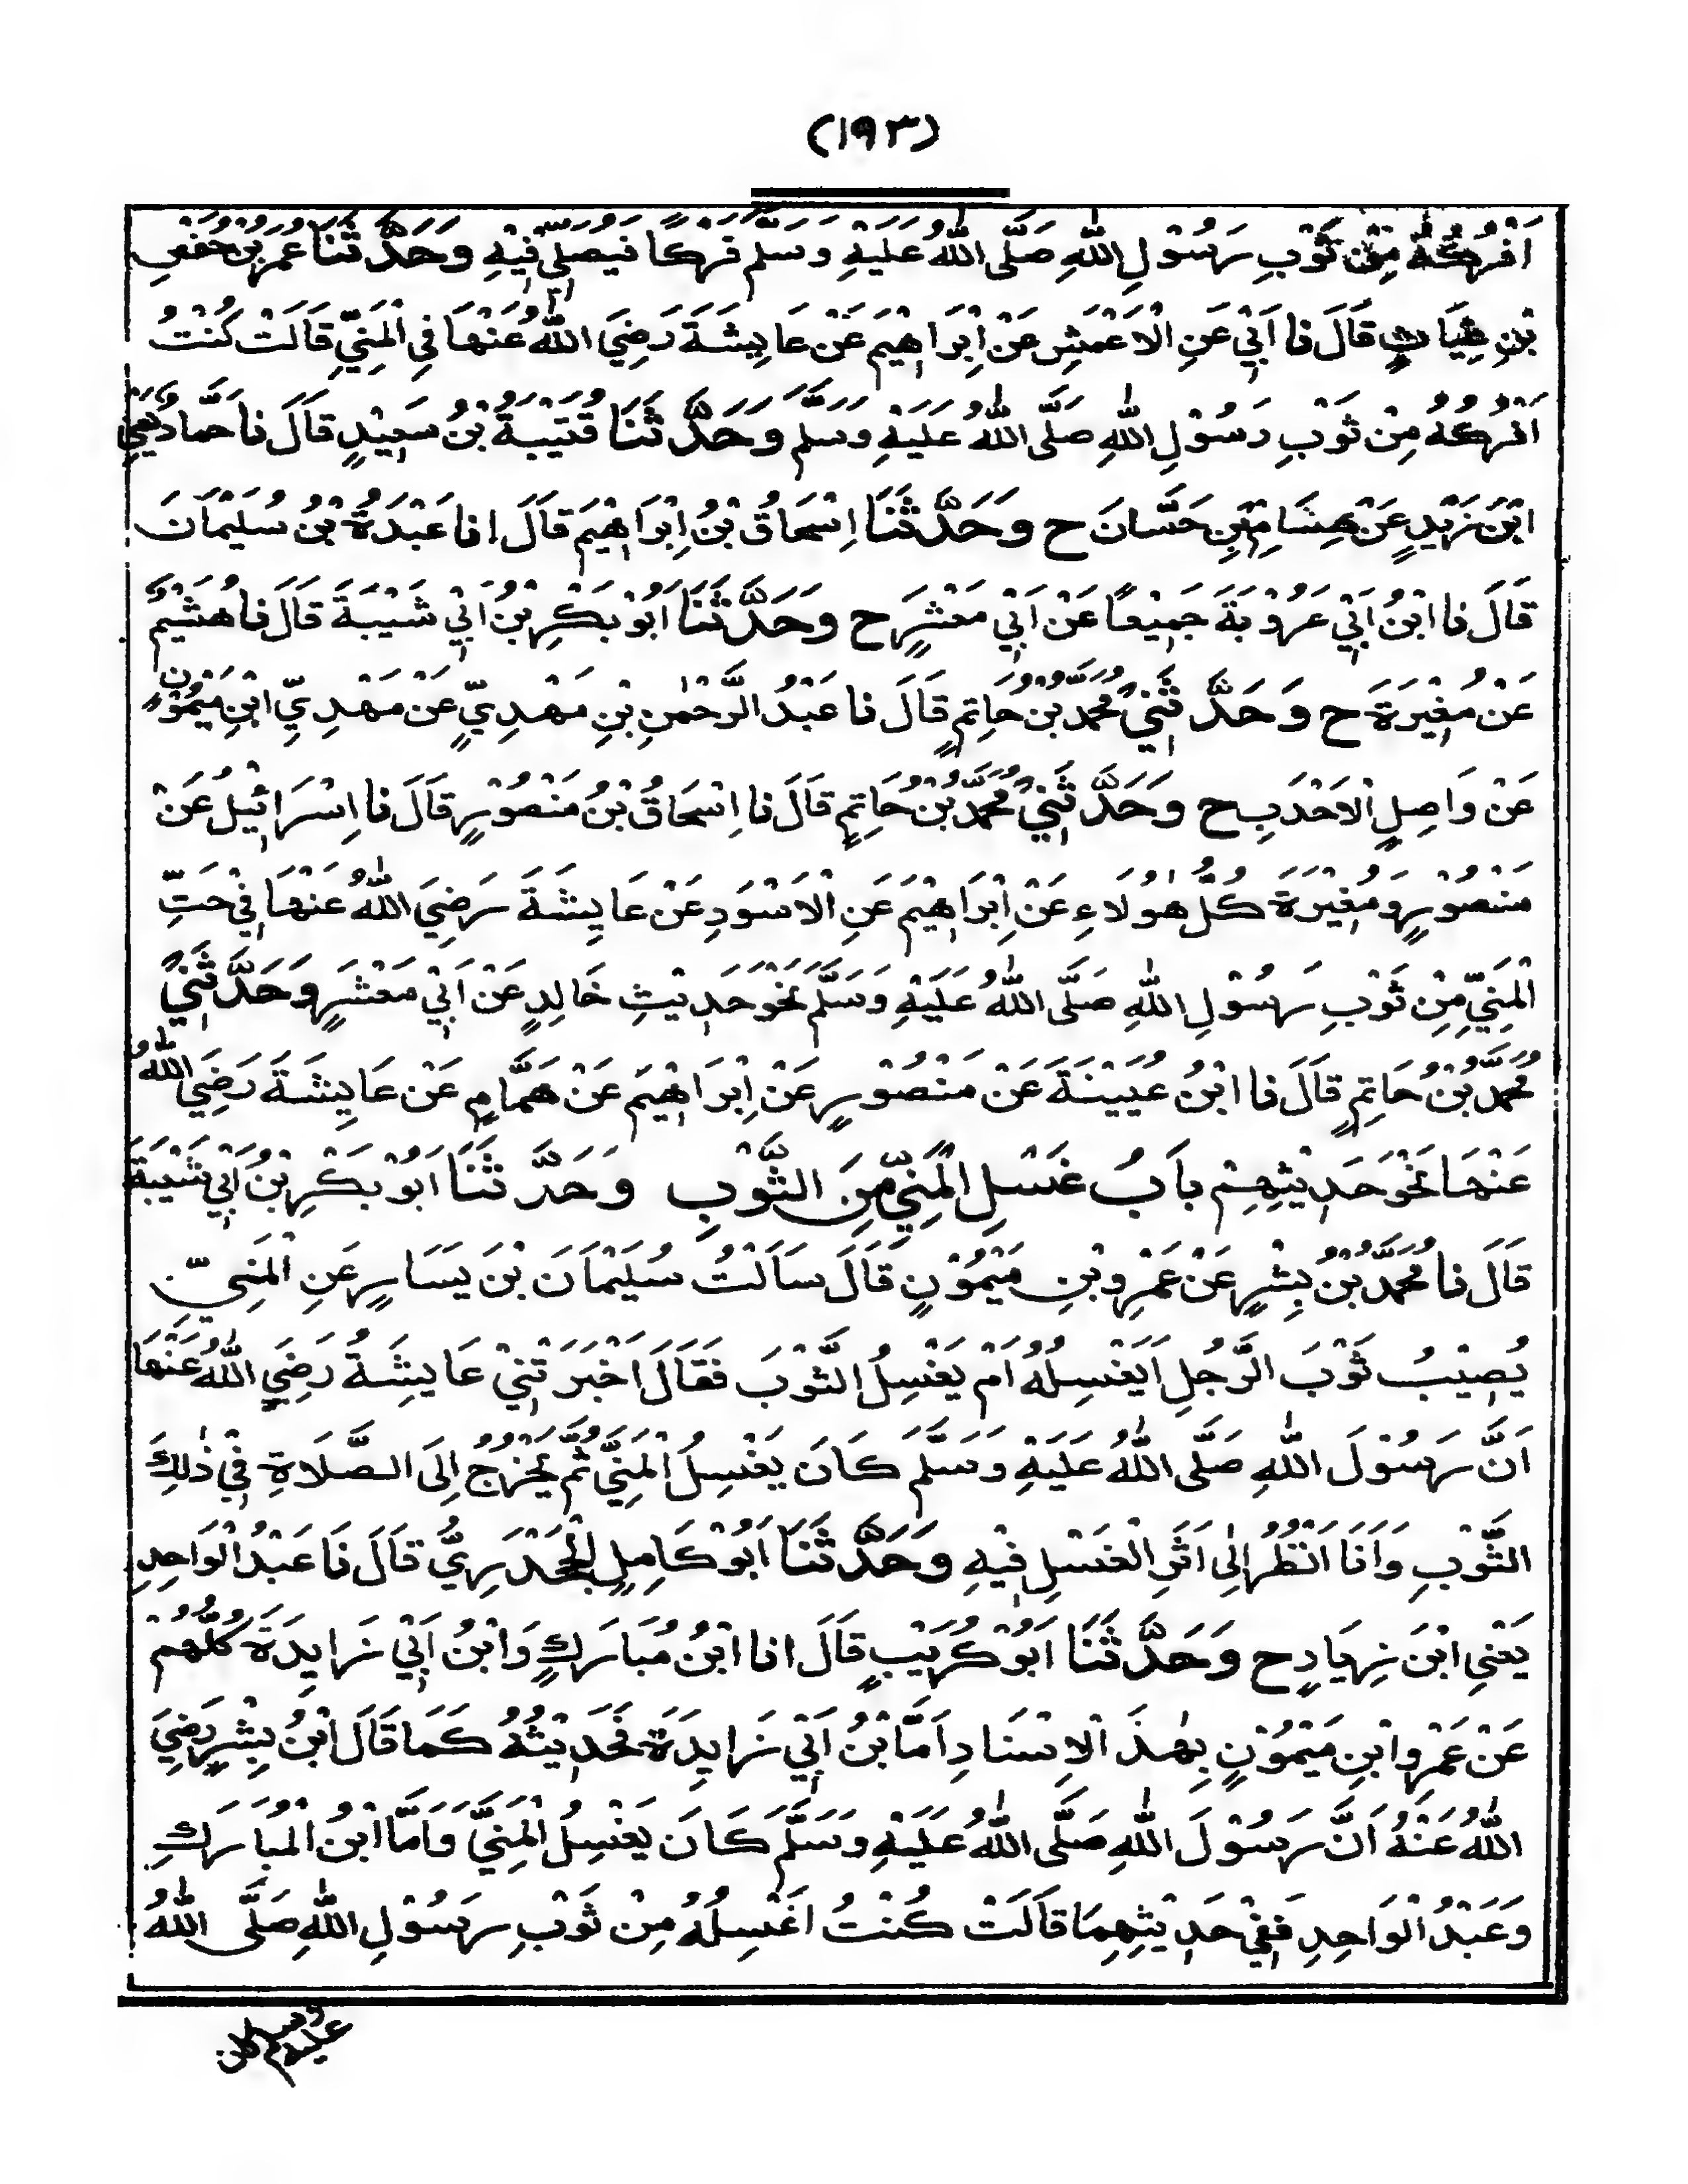 (١٩٣)
اَفْرُكُهٗ مِنْ ثَوْبِ رَسُوْلِ اللهِ صَلَّى اللهُ عَلَيْهِ وَسَلَّمَ فَرْكًا فَيُصَلِّيْ فِيْهِ وَحَدَّثَنَا عُمَرُ بْنُ حَفْصِ
بْنِ غِيَاثٍ قَالَ نا اَبِيْ عَنِ الْاَعْمَشِ عَنْ اِبْرَاهِيْمَ عَنْ عَايِشَةَ رَضِيَ اللهُ عَنْهَا فِي الْمَنِيِّ قَالَتْ كُنْتُ
اَفْرُكُهُ مِنْ ثَوْبِ رَسُوْلِ اللهِ صَلَّى اللهُ عَلَيْهِ وَسَلَّمَ وَحَدَّثَنَا قُتَيْبَةُ بْنُ سَعِيْدٍ قَالَ نا حَمَّادٌ يَعْنِي
ابْنَ زَيْدٍ عَنْ هِشَامِ بْنِ حَسَّانَ ح وَحَدَّثَنَا اِسْحَاقُ بْنُ اِبْرَاهِيْمَ قَالَ انا عَبْدَةُ بْنُ سُلَيْمَانَ
قَالَ نا ابْنُ اَبِيْ عَرُوْبَةَ جَمِيْعًا عَنْ اَبِيْ مَعْشَرٍ ح وَحَدَّثَنَا اَبُوْ بَكْرِ بْنُ اَبِيْ شَيْبَةَ قَالَ نا هُشَيْمٌ
عَنْ مُغِيْرَةَ ح وَحَدَّثَنِيْ مُحَمَّدُ بْنُ حَاتِمٍ قَالَ نا عَبْدُ الرَّحْمٰنِ بْنِ مَهْدِيٍّ عَنْ مَهْدِيِّ ابْنِ مَيْمُوْنٍ
عَنْ وَاصِلٍ الْاَحْدَبِ ح وَحَدَّثَنِيْ مُحَمَّدُ بْنُ حَاتِمٍ قَالَ نا اِسْحَاقُ بْنُ مَنْصُوْرٍ قَالَ نا اِسْرَائِيْلُ عَنْ
مَنْصُوْرٍ وَمُغِيْرَةَ كُلُّ هٰوُلَاءِ عَنْ اِبْرَاهِيْمَ عَنِ الْاَسْوَدِ عَنْ عَايِشَةَ رَضِيَ اللهُ عَنْهَا فِيْ حَتِّ
الْمَنِيِّ مِنْ ثَوْبِ رَسُوْلِ اللهِ صَلَّى اللهُ عَلَيْهِ وَسَلَّمَ نَحْوَ حَدِيْثِ خَالِدٍ عَنْ اَبِيْ مَعْشَرٍ وَحَدَّثَنِيْ
مُحَمَّدُ بْنُ حَاتِمٍ قَالَ نا ابْنُ عُيَيْنَةَ عَنْ مَنْصُوْرٍ عَنْ اِبْرَاهِيْمَ عَنْ هَمَّامٍ عَنْ عَايِشَةَ رَضِيَ اللهُ
عَنْهَا نَحْوَ حَدِيْثِهِمْ بَابُ غَسْلِ الْمَنِيِّ مِنَ الثَّوْبِ وَحَدَّثَنَا اَبُوْ بَكْرِ بْنُ اَبِيْ شَيْبَةَ
قَالَ نا مُحَمَّدُ بْنُ بِشْرٍ عَنْ عَمْرِو بْنِ مَيْمُوْنٍ قَالَ سَاَلْتُ سُلَيْمَانَ بْنَ يَسَارٍ عَنِ الْمَنِيِّ
يُصِيْبُ ثَوْبَ الرَّجُلِ اَيَغْسِلُهُ اَمْ يَغْسِلُ الثَّوْبَ فَقَالَ اَخْبَرَتْنِيْ عَايِشَةُ رَضِيَ اللهُ عَنْهَا
اَنَّ رَسُوْلَ اللهِ صَلَّى اللهُ عَلَيْهِ وَسَلَّمَ كَانَ يَغْسِلُ الْمَنِيَّ ثُمَّ يَخْرُجُ اِلَى الصَّلَاةِ فِيْ ذٰلِكَ
الثَّوْبِ وَاَنَا اَنْظُرُ اِلٰى اَثَرِ الْغَسْلِ فِيْهِ وَحَدَّثَنَا اَبُوْ كَامِلٍ الْجَحْدَرِيُّ قَالَ نَا عَبْدُ الْوَاحِدِ
يَعْنِي ابْنَ زِيَادٍ ح وَحَدَّثَنَا اَبُوْ كُرَيْبٍ قَالَ انا ابْنُ مُبَارَكٍ وَابْنُ اَبِيْ زَايِدَةَ كُلُّهُمْ
عَنْ عَمْرِو ابْنِ مَيْمُوْنٍ بِهٰذَ الْاِسْنَادِ اَمَّا بْنُ اَبِيْ زَايِدَةَ فَحَدِيْثُهُ كَمَا قَالَ ابْنُ بِشْرٍ رَضِيَ
اللهُ عَنْهُ اَنَّ رَسُوْلَ اللهِ صَلَّى اللهُ عَلَيْهِ وَسَلَّمَ كَانَ يَغْسِلُ الْمَنِيَّ وَاَمَّا ابْنُ الْمُبَارَكِ
وَعَبْدُ الْوَاحِدِ فَفِيْ حَدِيْثِهِمَا قَالَتْ كُنْتُ اَغْسِلُهُ مِنْ ثَوْبِ رَسُوْلِ اللهِ صَلَّى اللهُ
عليه وسلم